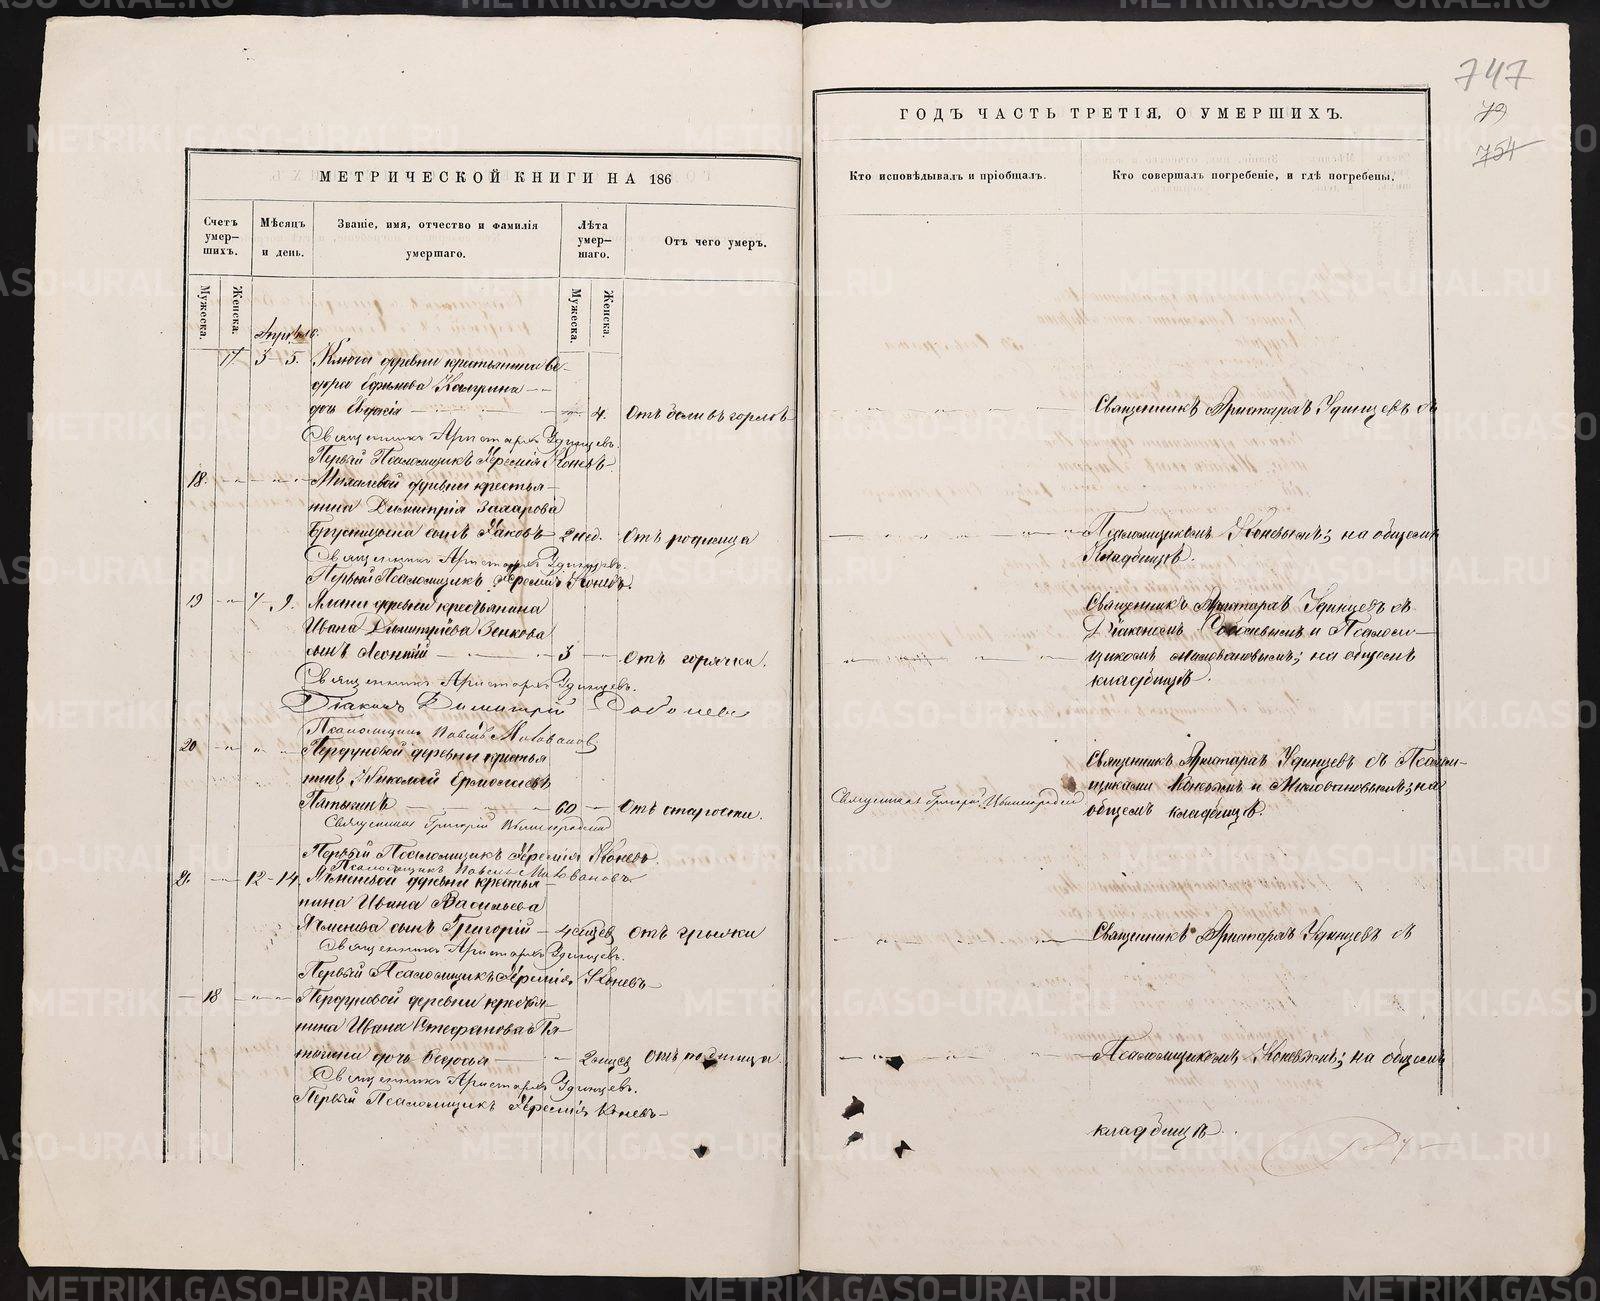 МЕТРИЧЕСКОЙ КНИГИ НА 186
Счетъ умер-шихъ.
Мѣсяцъ и день.
Званіе, имя, отчество и фамилія умершаго.
Лѣта умер-шаго.
Отъ чего умеръ.
Мужеска.
Женска.
Мужеска.
Женска.
17 3 5. Ключи деревни крестьянина Ѳе-
дора Ефимова
дочь 4. Отъ боли въ горлѣ
Священникъ Аристархъ Удинцевъ.
Первый Псаломщикъ Іеремія Коневъ
18. Михалевой деревни крестья-
нина Димитрія Захарова
Брусницына сынъ Іаковъ 2 нед. Отъ родимца
Священникъ Аристархъ Удинцевъ.
Первый Псаломщикъ Іеремія Коневъ.
19 7 9. деревни крестьянина
Ивана Димитріева Зенкова
сынъ Леонтій 3 Отъ горячки.
Священникъ Аристархъ Удинцевъ.
Діаконъ Димитрій
Псаломщикъ Павелъ Миловановъ
20 деревни крестья-
нинъ Николай Ермолаевъ
Пятыгинъ 60 Отъ старости.
Священникъ Григорій
Первый Псаломщикъ Іеремія Коневъ.
Псаломщикъ Павелъ Миловановъ
21. 12 14. деревни крестья-
нина Ивана Васильева
сынъ Григорій 4 Отъ грыжи
Священникъ Аристархъ Удинцевъ.
Первый Псаломщикъ Іеремія Коневъ
18 деревни крестья-
нина Ивана Стефанова Пя-
дочь Ѳедосья 2 Отъ родимца.
Священникъ Аристархъ Удинцевъ.
Первый Псаломщикъ Іеремія Коневъ
747
79
754
ГОДЪ ЧАСТЬ ТРЕТІЯ, О УМЕРШИХЪ.
Кто исповѣдывалъ и пріобщалъ.
Кто совершалъ погребеніе, и гдѣ погребены.
Священникъ Аристархъ Удинцевъ съ
Псаломщикомъ Коневымъ; на общемъ
Кладбищѣ.
Священникъ Аристархъ Удинцевъ съ
Діакономъ и Псалом-
щикомъ Миловановымъ; на общемъ
кладбищѣ.
Священникъ Аристархъ Удинцевъ съ Псалом-
щиками Коневымъ и Миловановымъ; на
общемъ кладбищѣ.
Священникъ Григорій
Священникъ Аристархъ Удинцевъ съ
Псаломщикомъ Коневымъ; на общемъ
кладбищѣ.
METRIKI.GASO-URAL.RU